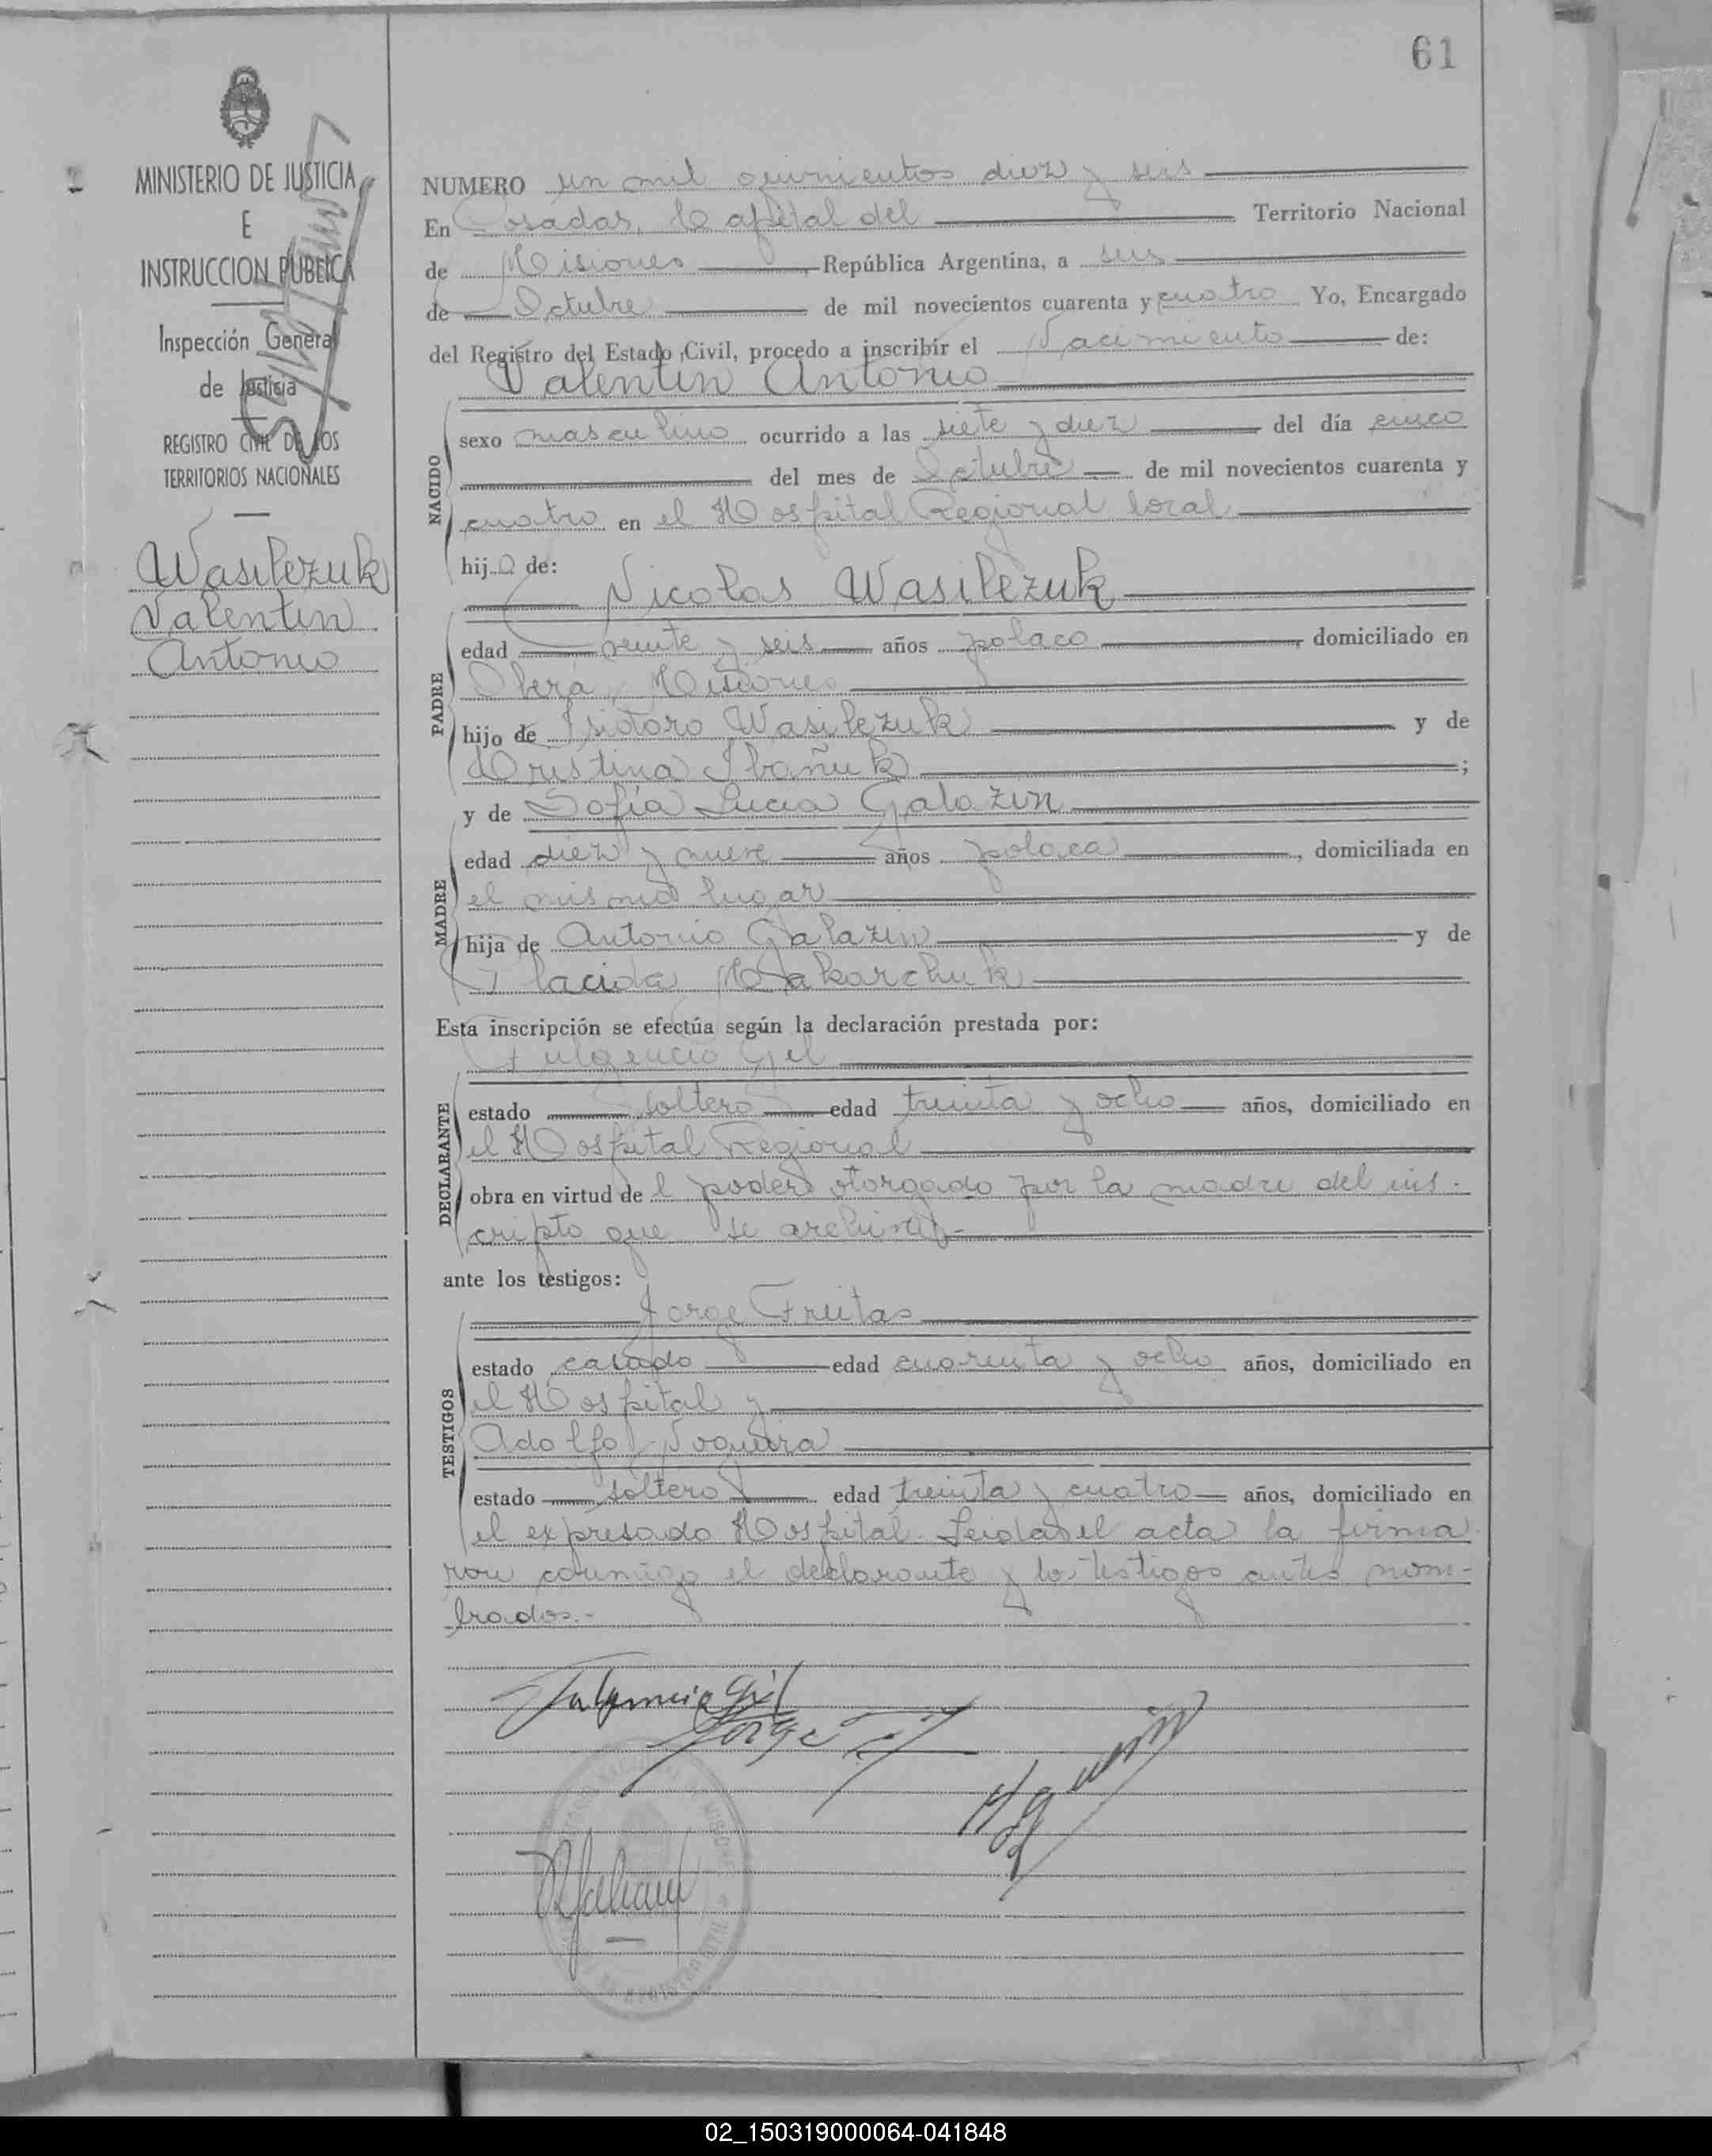 61
MINISTERIO DE JUSTICIA
E
INSTRUCCION PUBLICA
Inspección General
de Justicia
REGISTRO CIVIL DE LOS
TERRITORIOS NACIONALES
Wasilezuk
Valentin
Antonio
NUMERO un mil quinientos diez y seis
En Posadas, Capital del Territorio Nacional
de Misiones República Argentina, a seis
de Octubre de mil novecientos cuarenta y cuatro Yo, Encargado
del Registro del Estado Civil, procedo a inscribir el Nacimiento de:
Valentin Antonio
NACIDO
sexo masculino ocurrido a las siete y diez del día cinco
del mes de Octubre de mil novecientos cuarenta y
cuatro en el Hospital Regional local
hijo de:
Nicolas Wasilezuk
PADRE
edad veinte y seis años polaco, domiciliado en
Obera, Misiones
hijo de Isidoro Wasilezuk y de
Cristina Ibañuk;
y de Sofía Lucia Galazin
MADRE
edad diez y nueve años polaca, domiciliada en
el mismo lugar
hija de Antonio Galazin y de
Placida Makarchuk
Esta inscripción se efectúa según la declaración prestada por:
Fulgencio Gil
DECLARANTE
estado soltero edad treinta y ocho años, domiciliado en
el Hospital Regional
obra en virtud del poder otorgado por la madre del ins-
cripto que se archiva.-
ante los testigos:
Jorge Freitas
TESTIGOS
estado casado edad cuarenta y ocho años, domiciliado en
el Hospital y
Adolfo Noguera
estado soltero edad treinta y cuatro años, domiciliado en
el expresado Hospital. Leida el acta la firma
ron conmigo el declarante y los testigos antes nom-
brados.-
Fulgencio Gil
Jorge F
02_150319000064-041848